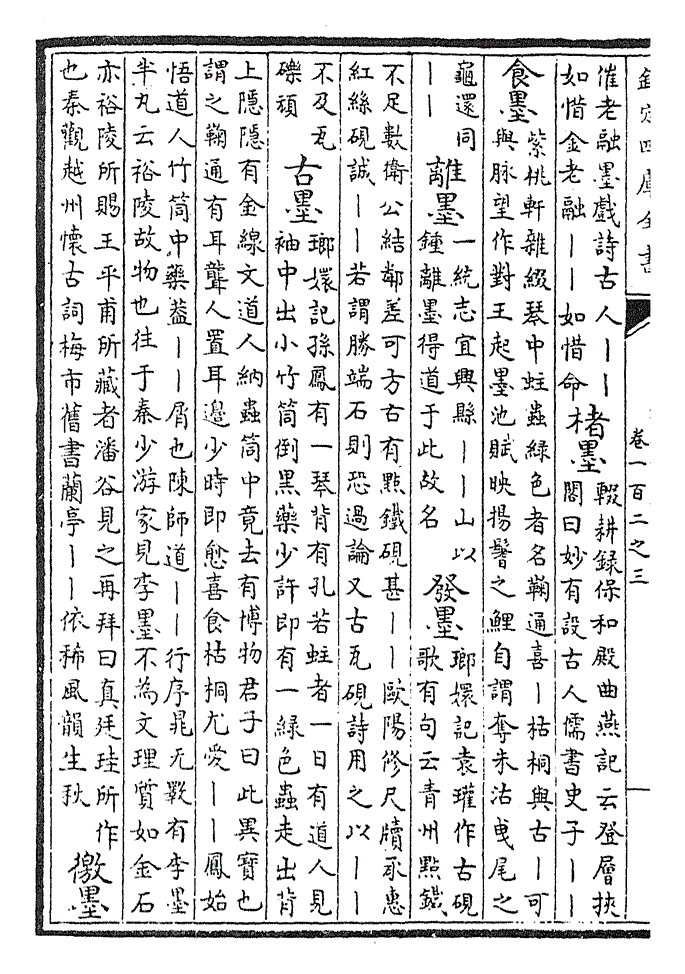 欽定四庫全書
卷一百二之三
催老融墨戲詩古人｜｜
如惜金老融｜｜如惜命
楮墨
輟耕録保和殿曲燕記云登層挾
閣曰妙有設古人儒書史子｜｜
食墨
紫桃軒雜綴琴中蛀蟲綠色者名鞠通喜｜枯桐與古｜可
與脉望作對王起墨池賦映揚鬐之鯉自謂奪朱沾曳尾之
龜還同
｜｜
離墨
一統志宜興縣｜｜山以
鍾離墨得道于此故名
發墨
瑯嬛記袁瓘作古硯
歌有句云青州點鐵
不足數衛公結鄰差可方古有點鐵硯甚｜｜歐陽修尺牘承惠
紅絲硯誠｜｜若謂勝端石則恐過論又古瓦硯詩用之以｜｜
不及瓦
礫頑
古墨
瑯嬛記孫鳳有一琴背有孔若蛀者一日有道人見
袖中出小竹筒倒黑藥少許即有一綠色蟲走出背
上隱隱有金線文道人納蟲筒中竟去有博物君子曰此異寶也
謂之鞠通有耳聾人置耳邊少時即愈喜食枯桐尤愛｜｜鳳始
悟道人竹筒中藥葢｜｜屑也陳師道｜｜行序晁无斁有李墨
半丸云裕陵故物也往于秦少游家見李墨不為文理質如金石
亦裕陵所賜王平甫所藏者潘谷見之再拜曰真廷珪所作
也秦觀越州懷古詞梅市舊書蘭亭｜｜依稀風韻生秋
徼墨